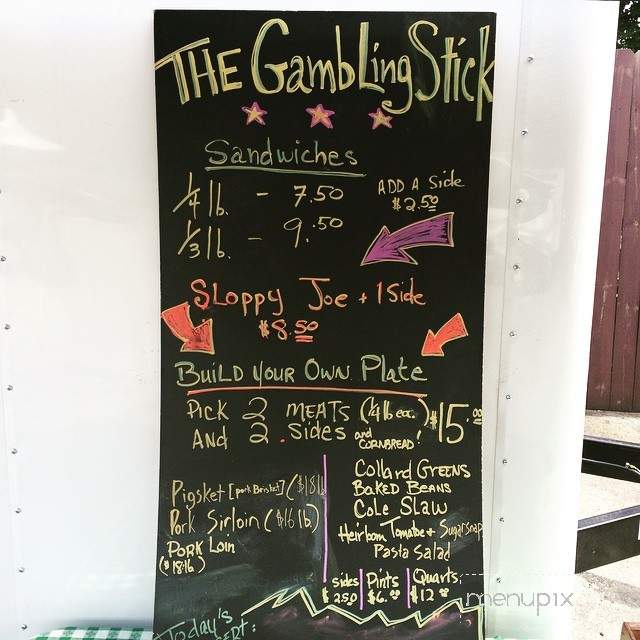 THE GambLing Stick
Sandwiches
1/4 lb. - 7.50
ADD A Side
$2.50
1/3 lb. - 9.50
SLoppy Joe + 1 Side
$8.50
BUILD YOUR OWN Plate
Pick 2 MEATS (1/4 lb ea.) $15.00
AND 2 Sides and CORNBREAD!
Pigsket [pork Brisket] ($18 lb
Pork Sirloin ($16 lb.)
PORK Loin
($18 lb)
Collard GREENS
BAKED BEANS
Cole Slaw
Heirloom Tomatoe + Sugarsnap
Pasta Salad
Sides Pints Quarts
$2.50 $6.00 $12.00
Today's
menupix